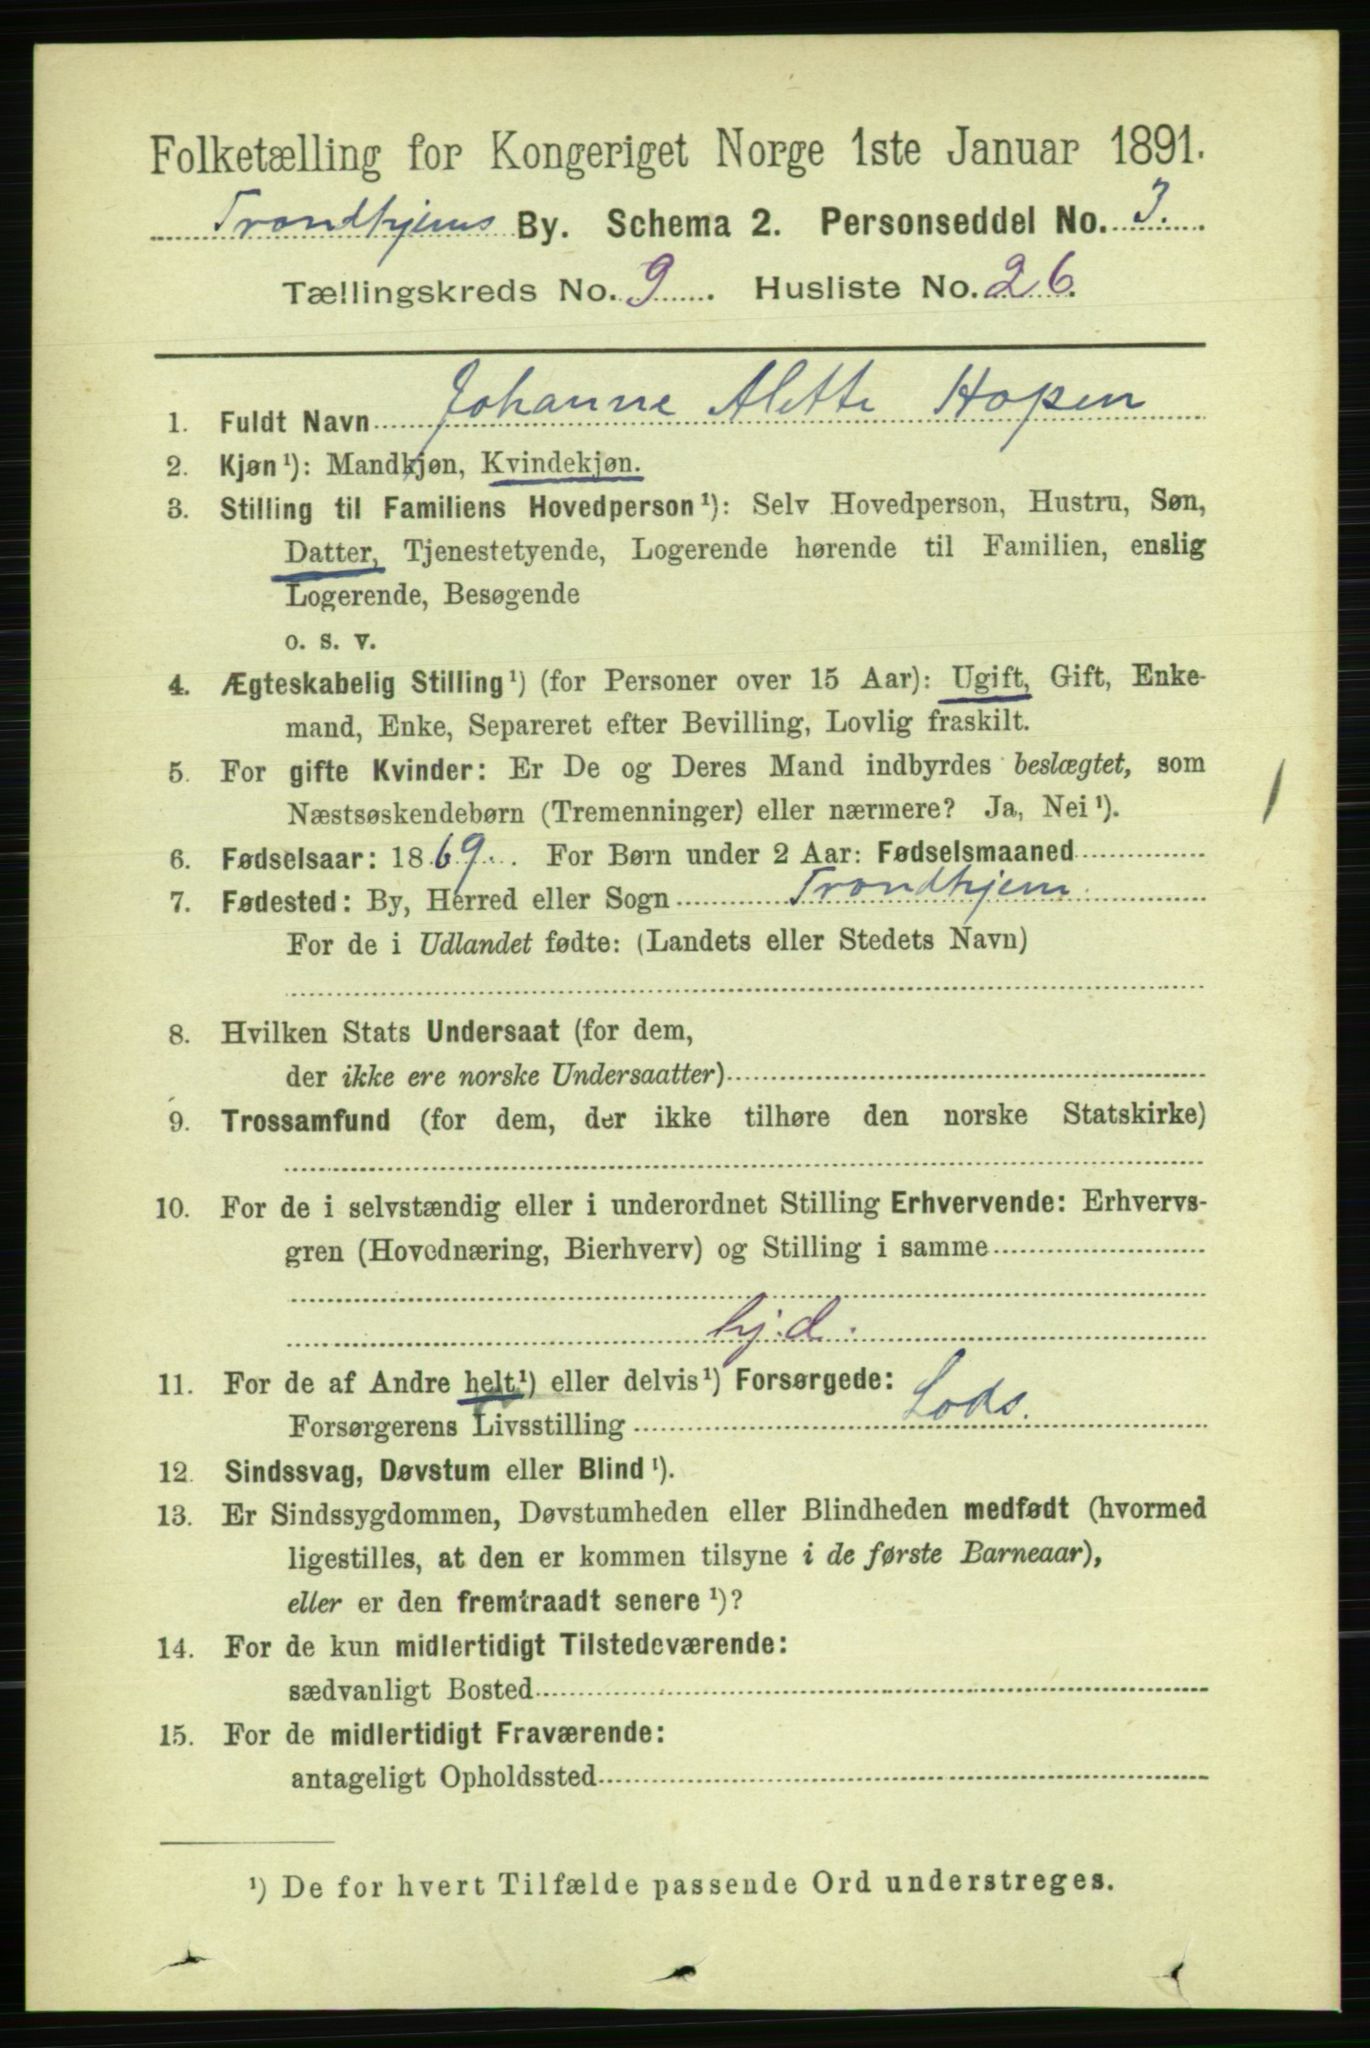 Folketælling for Kongeriget Norge 1ste Januar 1891.
Trondhjems By. Schema 2. Personseddel No. 3.
Tællingskreds No. 9. Husliste No. 26.
1. Fuldt Navn Johanne Alette Hopen
2. Kjøn¹): Mandkjøn, Kvindekjøn.
3. Stilling til Familiens Hovedperson¹): Selv Hovedperson, Hustru, Søn,
Datter, Tjenestetyende, Logerende hørende til Familien, enslig
Logerende, Besøgende
o. s. v.
4. Ægteskabelig Stilling¹) (for Personer over 15 Aar): Ugift, Gift, Enke-
mand, Enke, Separeret efter Bevilling, Lovlig fraskilt.
5. For gifte Kvinder: Er De og Deres Mand indbyrdes beslægtet, som
Næstsøskendebørn (Tremenninger) eller nærmere? Ja, Nei¹).
6. Fødselsaar: 1869. For Børn under 2 Aar: Fødselsmaaned
7. Fødested: By, Herred eller Sogn Trondhjem
For de i Udlandet fødte: (Landets eller Stedets Navn)
8. Hvilken Stats Undersaat (for dem,
der ikke ere norske Undersaatter)
9. Trossamfund (for dem, der ikke tilhøre den norske Statskirke)
10. For de i selvstændig eller i underordnet Stilling Erhvervende: Erhvervs-
gren (Hovednæring, Bierhverv) og Stilling i samme
hj. d.
11. For de af Andre helt¹) eller delvis¹) Forsørgede:
Forsørgerens Livsstilling Lods.
12. Sindssvag, Døvstum eller Blind¹).
13. Er Sindssygdommen, Døvstumheden eller Blindheden medfødt (hvormed
ligestilles, at den er kommen tilsyne i de første Barneaar),
eller er den fremtraadt senere¹)?
14. For de kun midlertidigt Tilstedeværende:
sædvanligt Bosted
15. For de midlertidigt Fraværende:
antageligt Opholdssted
¹) De for hvert Tilfælde passende Ord understreges.